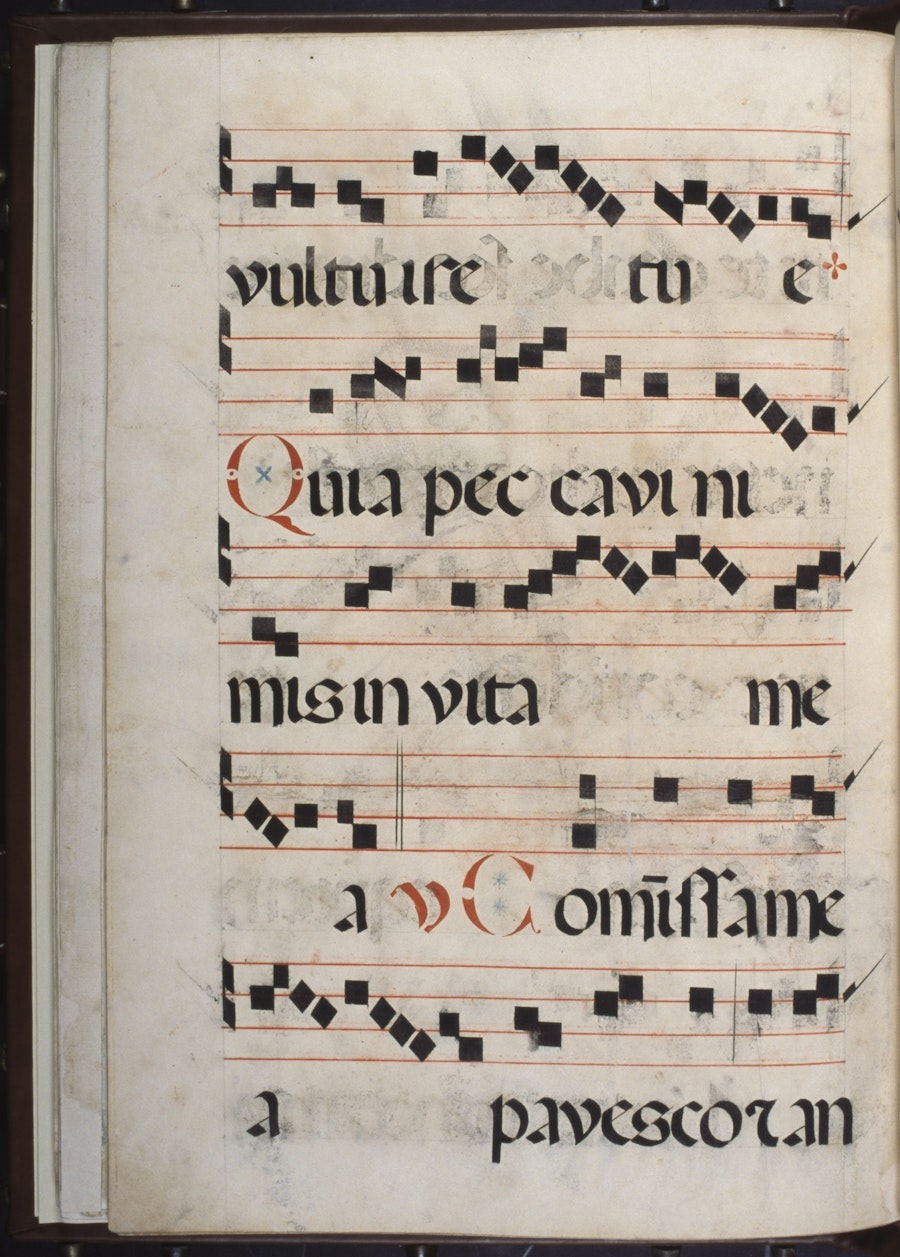 vultu ire tu e
Quia pec cavi ni
mis in vita me
a ℣ Com̄issa me
a pavesco ⁊ an